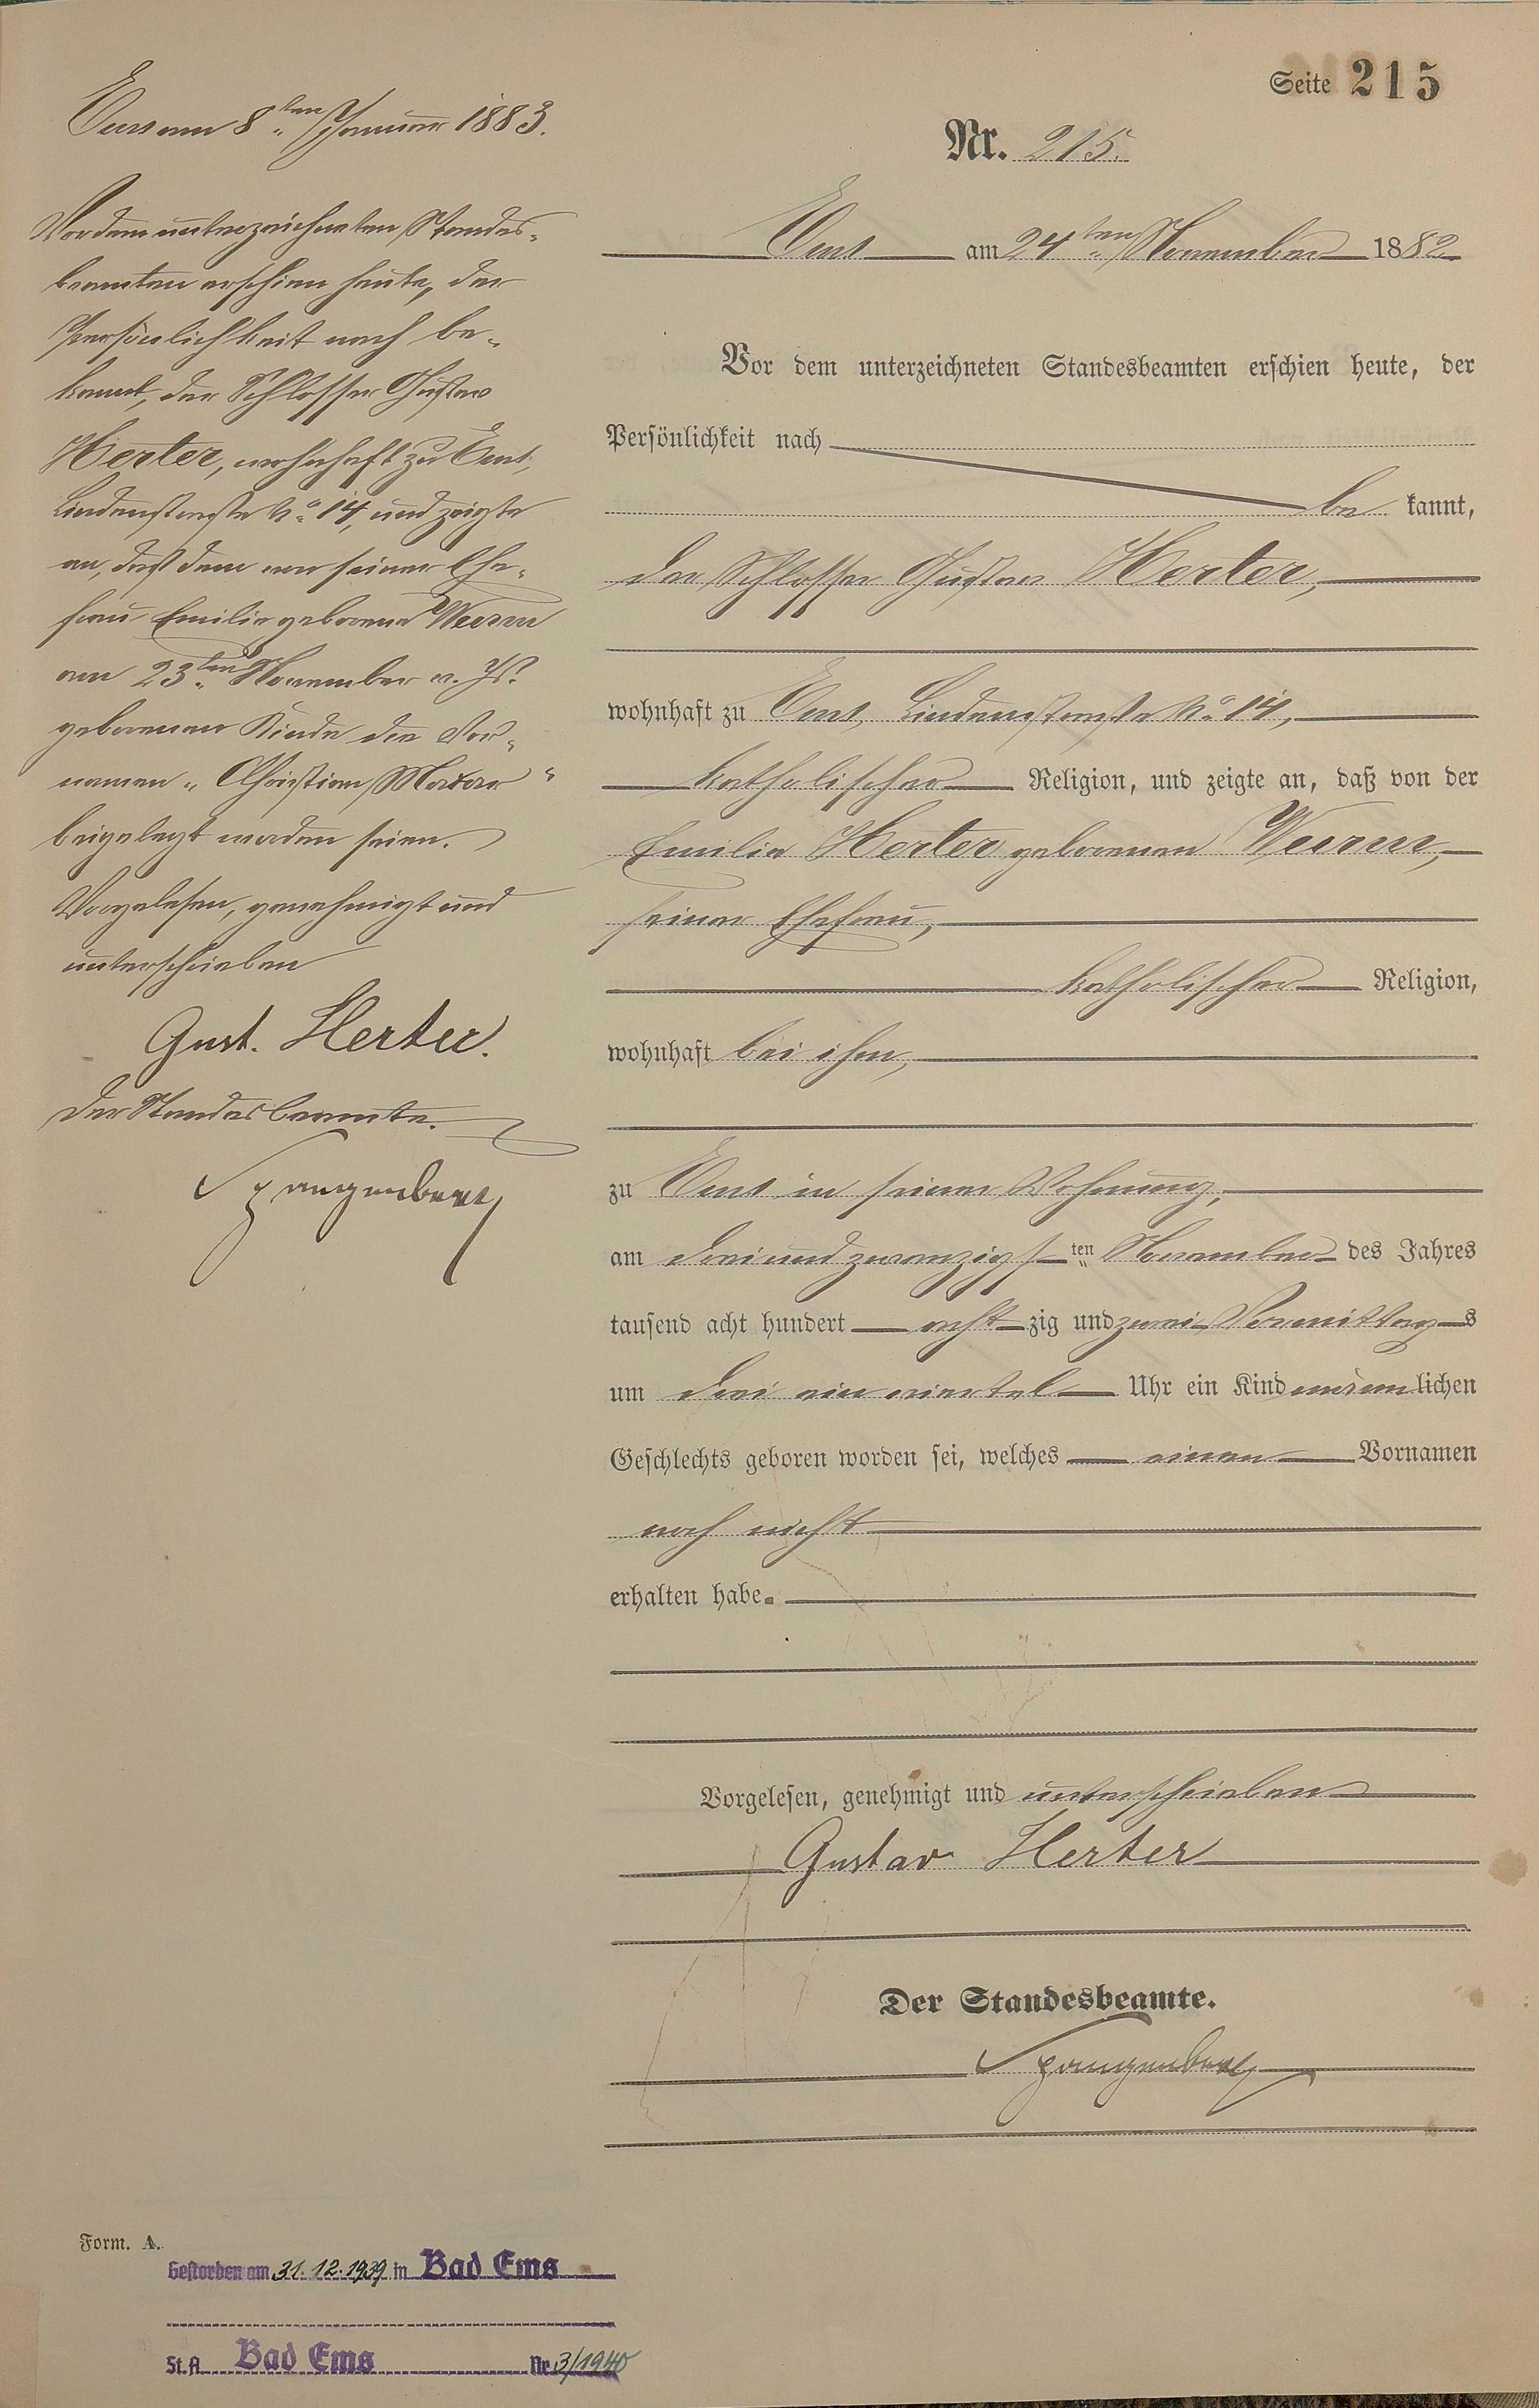 Seite 215
Nr. 215.
Ems am 24ten November 1882
Vor dem unterzeichneten Standesbeamten erschien heute, der
Persönlichkeit nach
be kannt,
der Schlosser Gustav Herter,
wohnhaft zu Ems, Lindenstraße No 14,
katholischer Religion, und zeigte an, daß von der
Emilie Herter geborenen Werner,
seiner Ehefrau,
katholischer Religion,
wohnhaft bei ihm,
zu Ems in seiner Wohnung,
am dreiundzwanzigsten November des Jahres
tausend acht hundert achtzig und zwei Vormittags
um drei ein viertel Uhr ein Kind männlichen
Geschlechts geboren worden sei, welches einen Vornamen
noch nicht
erhalten habe.
Vorgelesen, genehmigt und unterschrieben
Gustav Herter
Der Standesbeamte.
Spangenberg
Ems am 8ten Januar 1883.
Vor dem unterzeichneten Standes-
beamten erschien heute, der
Persönlichkeit nach be-
kannt, der Schlosser Gustav
Herter, wohnhaft zu Ems,
Lindenstraße No 14, und zeigte
an, daß dem von seiner Ehe-
frau Emilie geborene Werner
am 23ten November v. Js.
geborenen Kinde die Vor-
namen "Christian
beigelegt worden seien.
Vorgelesen, genehmigt und
unterschrieben
Gust. Herter.
Der Standesbeamte.
Spangenberg
Form. A.
Gestorben am 31.12.1939 in Bad Ems
St. A. Bad Ems Nr 3/1940